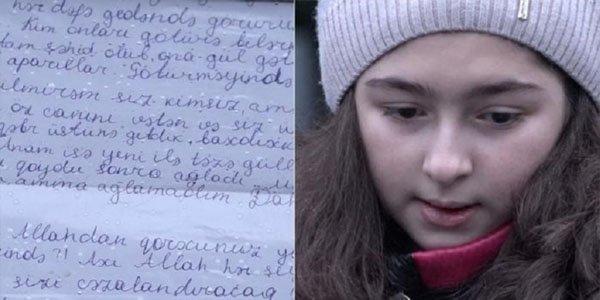 hər dəfə gedəndə görürük
Kim onları götürə bilər
şəhid olub, ona gül
aparıllar. Götürməyində
bilmirəm siz kimsiz, am
öz canını vətən və siz u
qəbr üstünə getdik, baxdıx k
Anam isə yeni ilə təzə güll
qoydu sonra ağladı
amma ağlamadım. Da
Allahdan qorxunuz y
Axı Allah hər şe
sizi cəzalandıracaq